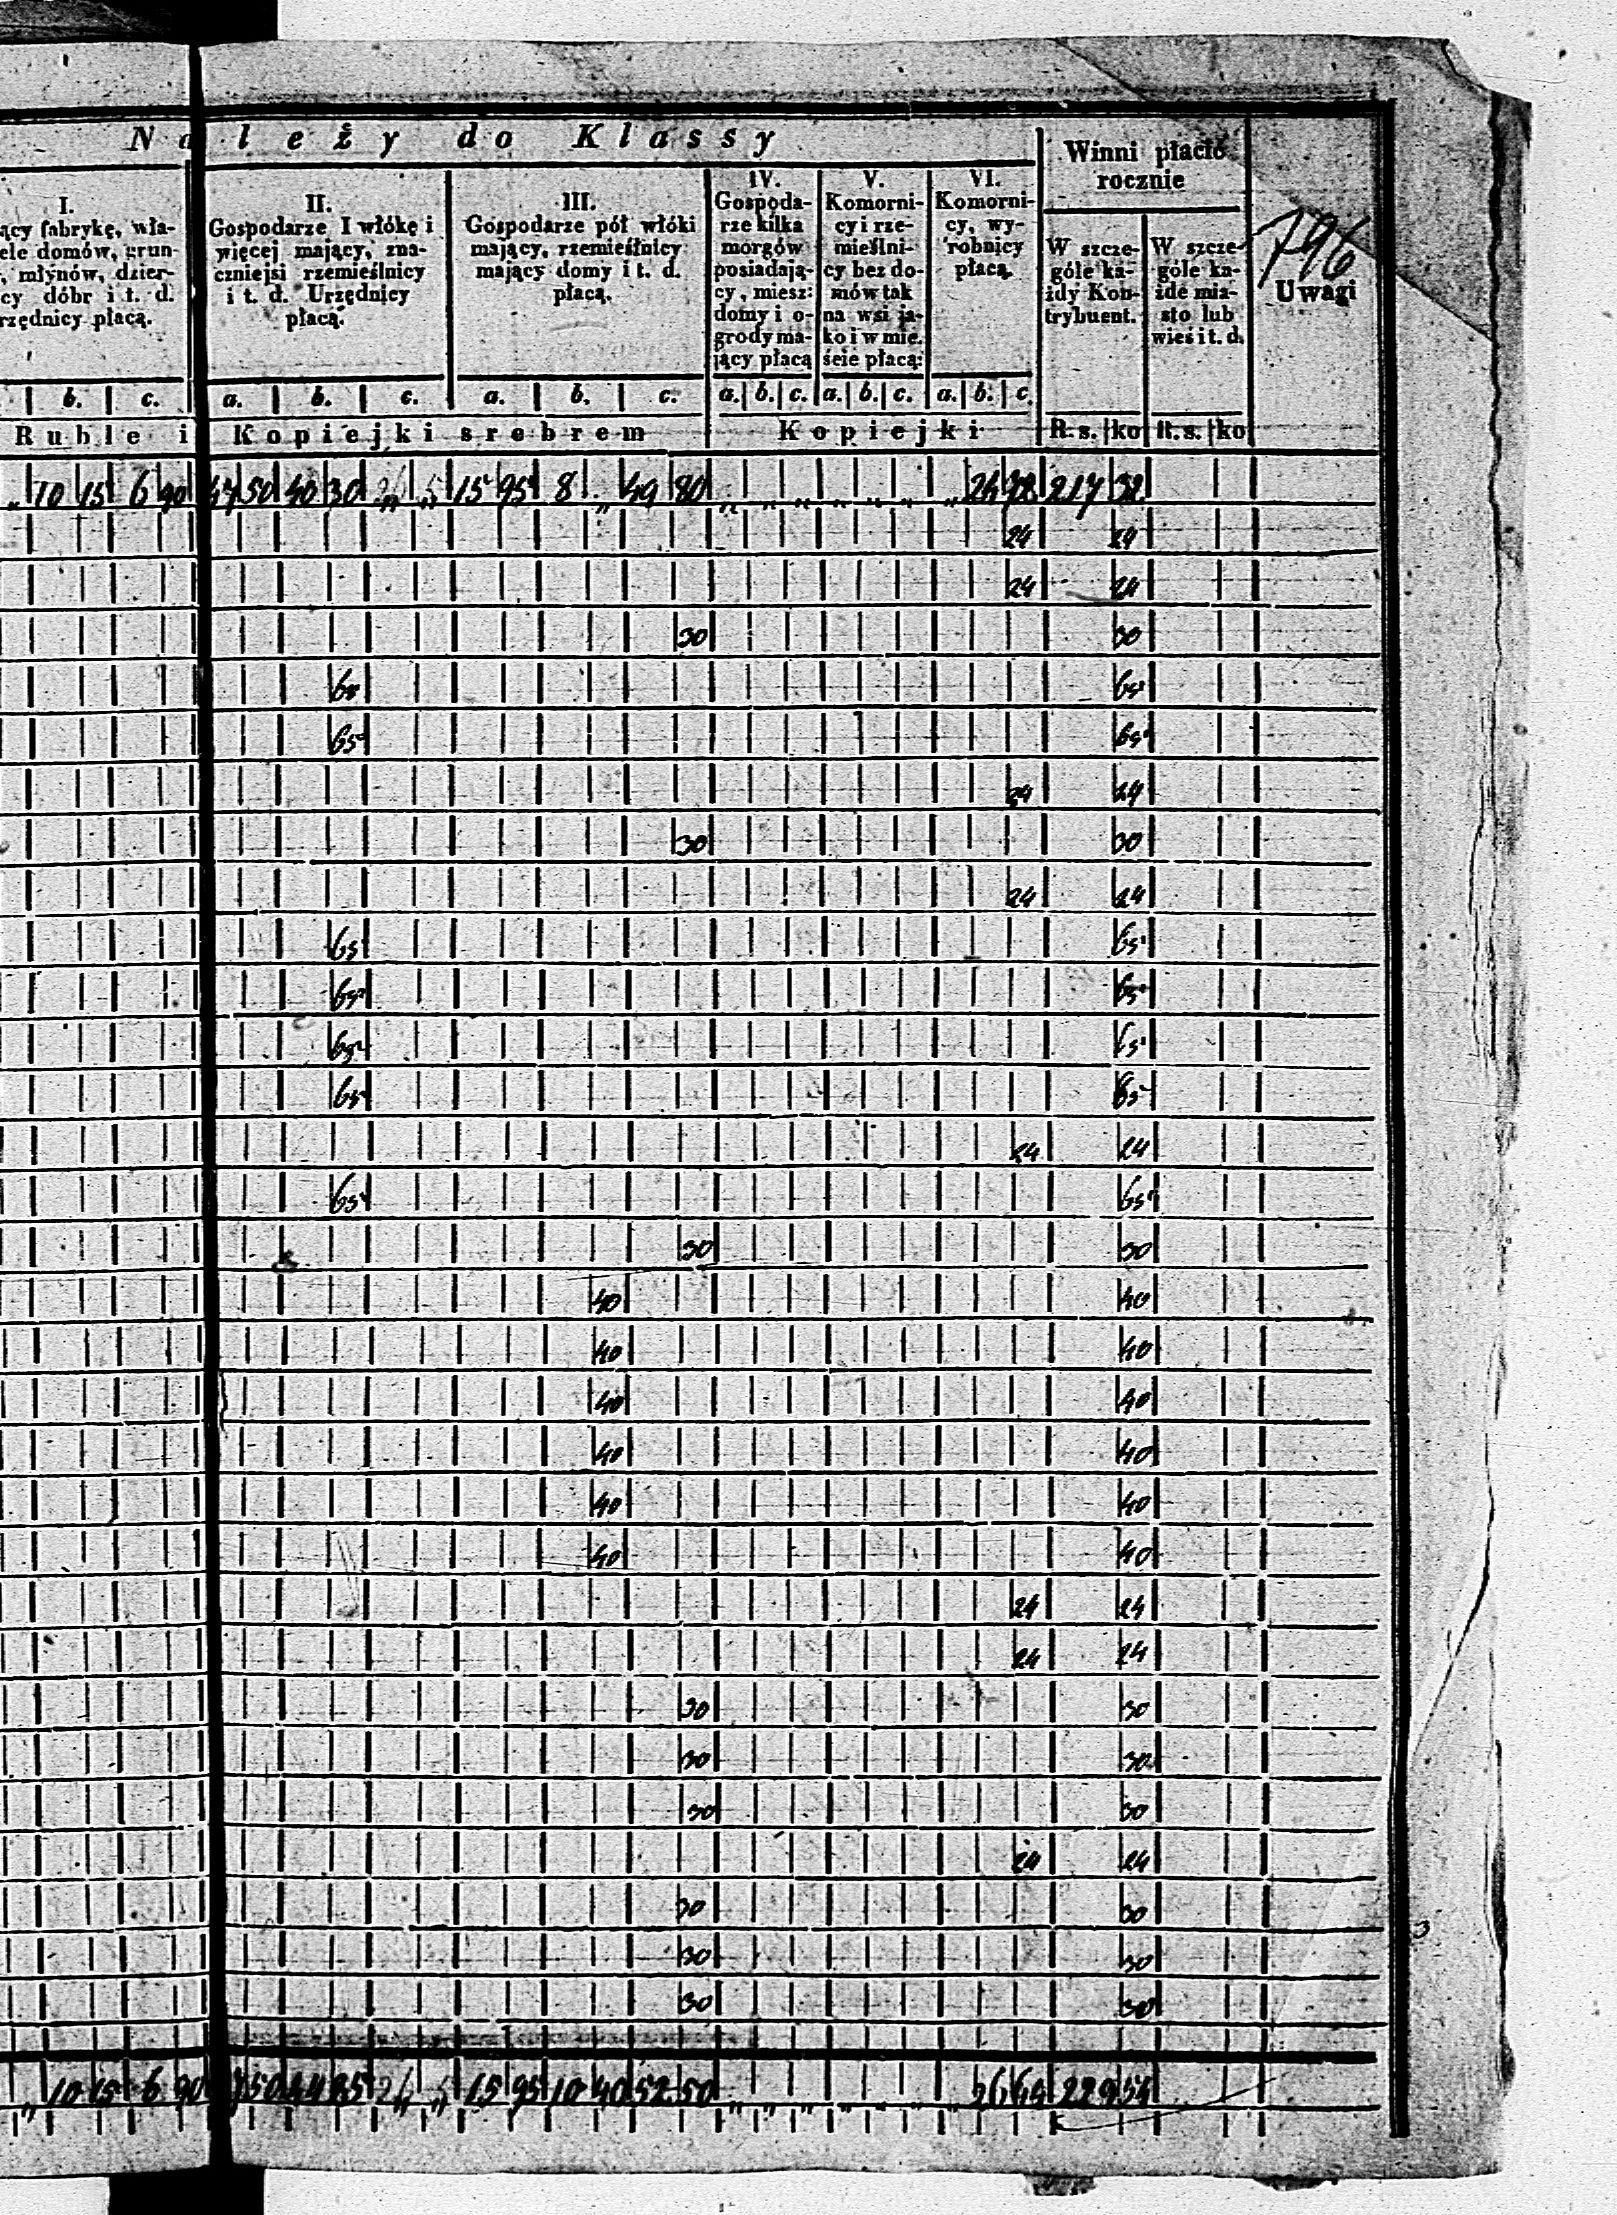 Należy do Klassy
Winni płacić rocznie
796
Uwagi
I.
ący fabrykę, wła-
ele domów, grun-
, młynów, dzier-
cy dóbr i t. d.
rzędnicy płacą.
II.
Gospodarze I włókę i
więcej mający, zna-
czniejsi rzemieślnicy
i t. d. Urzędnicy
płacą.
III.
Gospodarze pół włóki
mający, rzemieślnicy
mający domy i t. d.
płacą.
IV.
Gospoda-
rze kilka
morgów
posiadają-
cy, miesz:
domy i o-
grody ma-
jący płacą
V.
Komorni-
cy i rze-
mieślni-
cy bez do-
mów tak
na wsi ja-
ko i w mie.
ście płacą:
VI.
Komorni-
cy, wy-
robnicy
płacą.
W szcze-
góle ka-
żdy Kon-
trybuent.
W szcze-
góle ka-
żde mia-
sto lub
wieś i t. d.
b. c. a. b. c. a. b. c. a. b. c. a. b. c. a. b. c.
Ruble i Kopiejki srebrem Kopiejki R.s. ko R.s. ko
10 15 6 90 47 50 40 30 15 95 8 „ 49 80 217 32
24 24
24 24
30 30
65 65
65 65
24 24
30 30
24 24
65 65
65 65
65 65
65 65
24 24
65 65
30 30
40 40
40 40
40 40
40 40
40 40
40 40
24 24
24 24
30 30
30 30
30 30
24 24
30 30
30 30
30 30
10 15 6 90 50 44 85 15 95 10 40 52 50 26 64 229 54